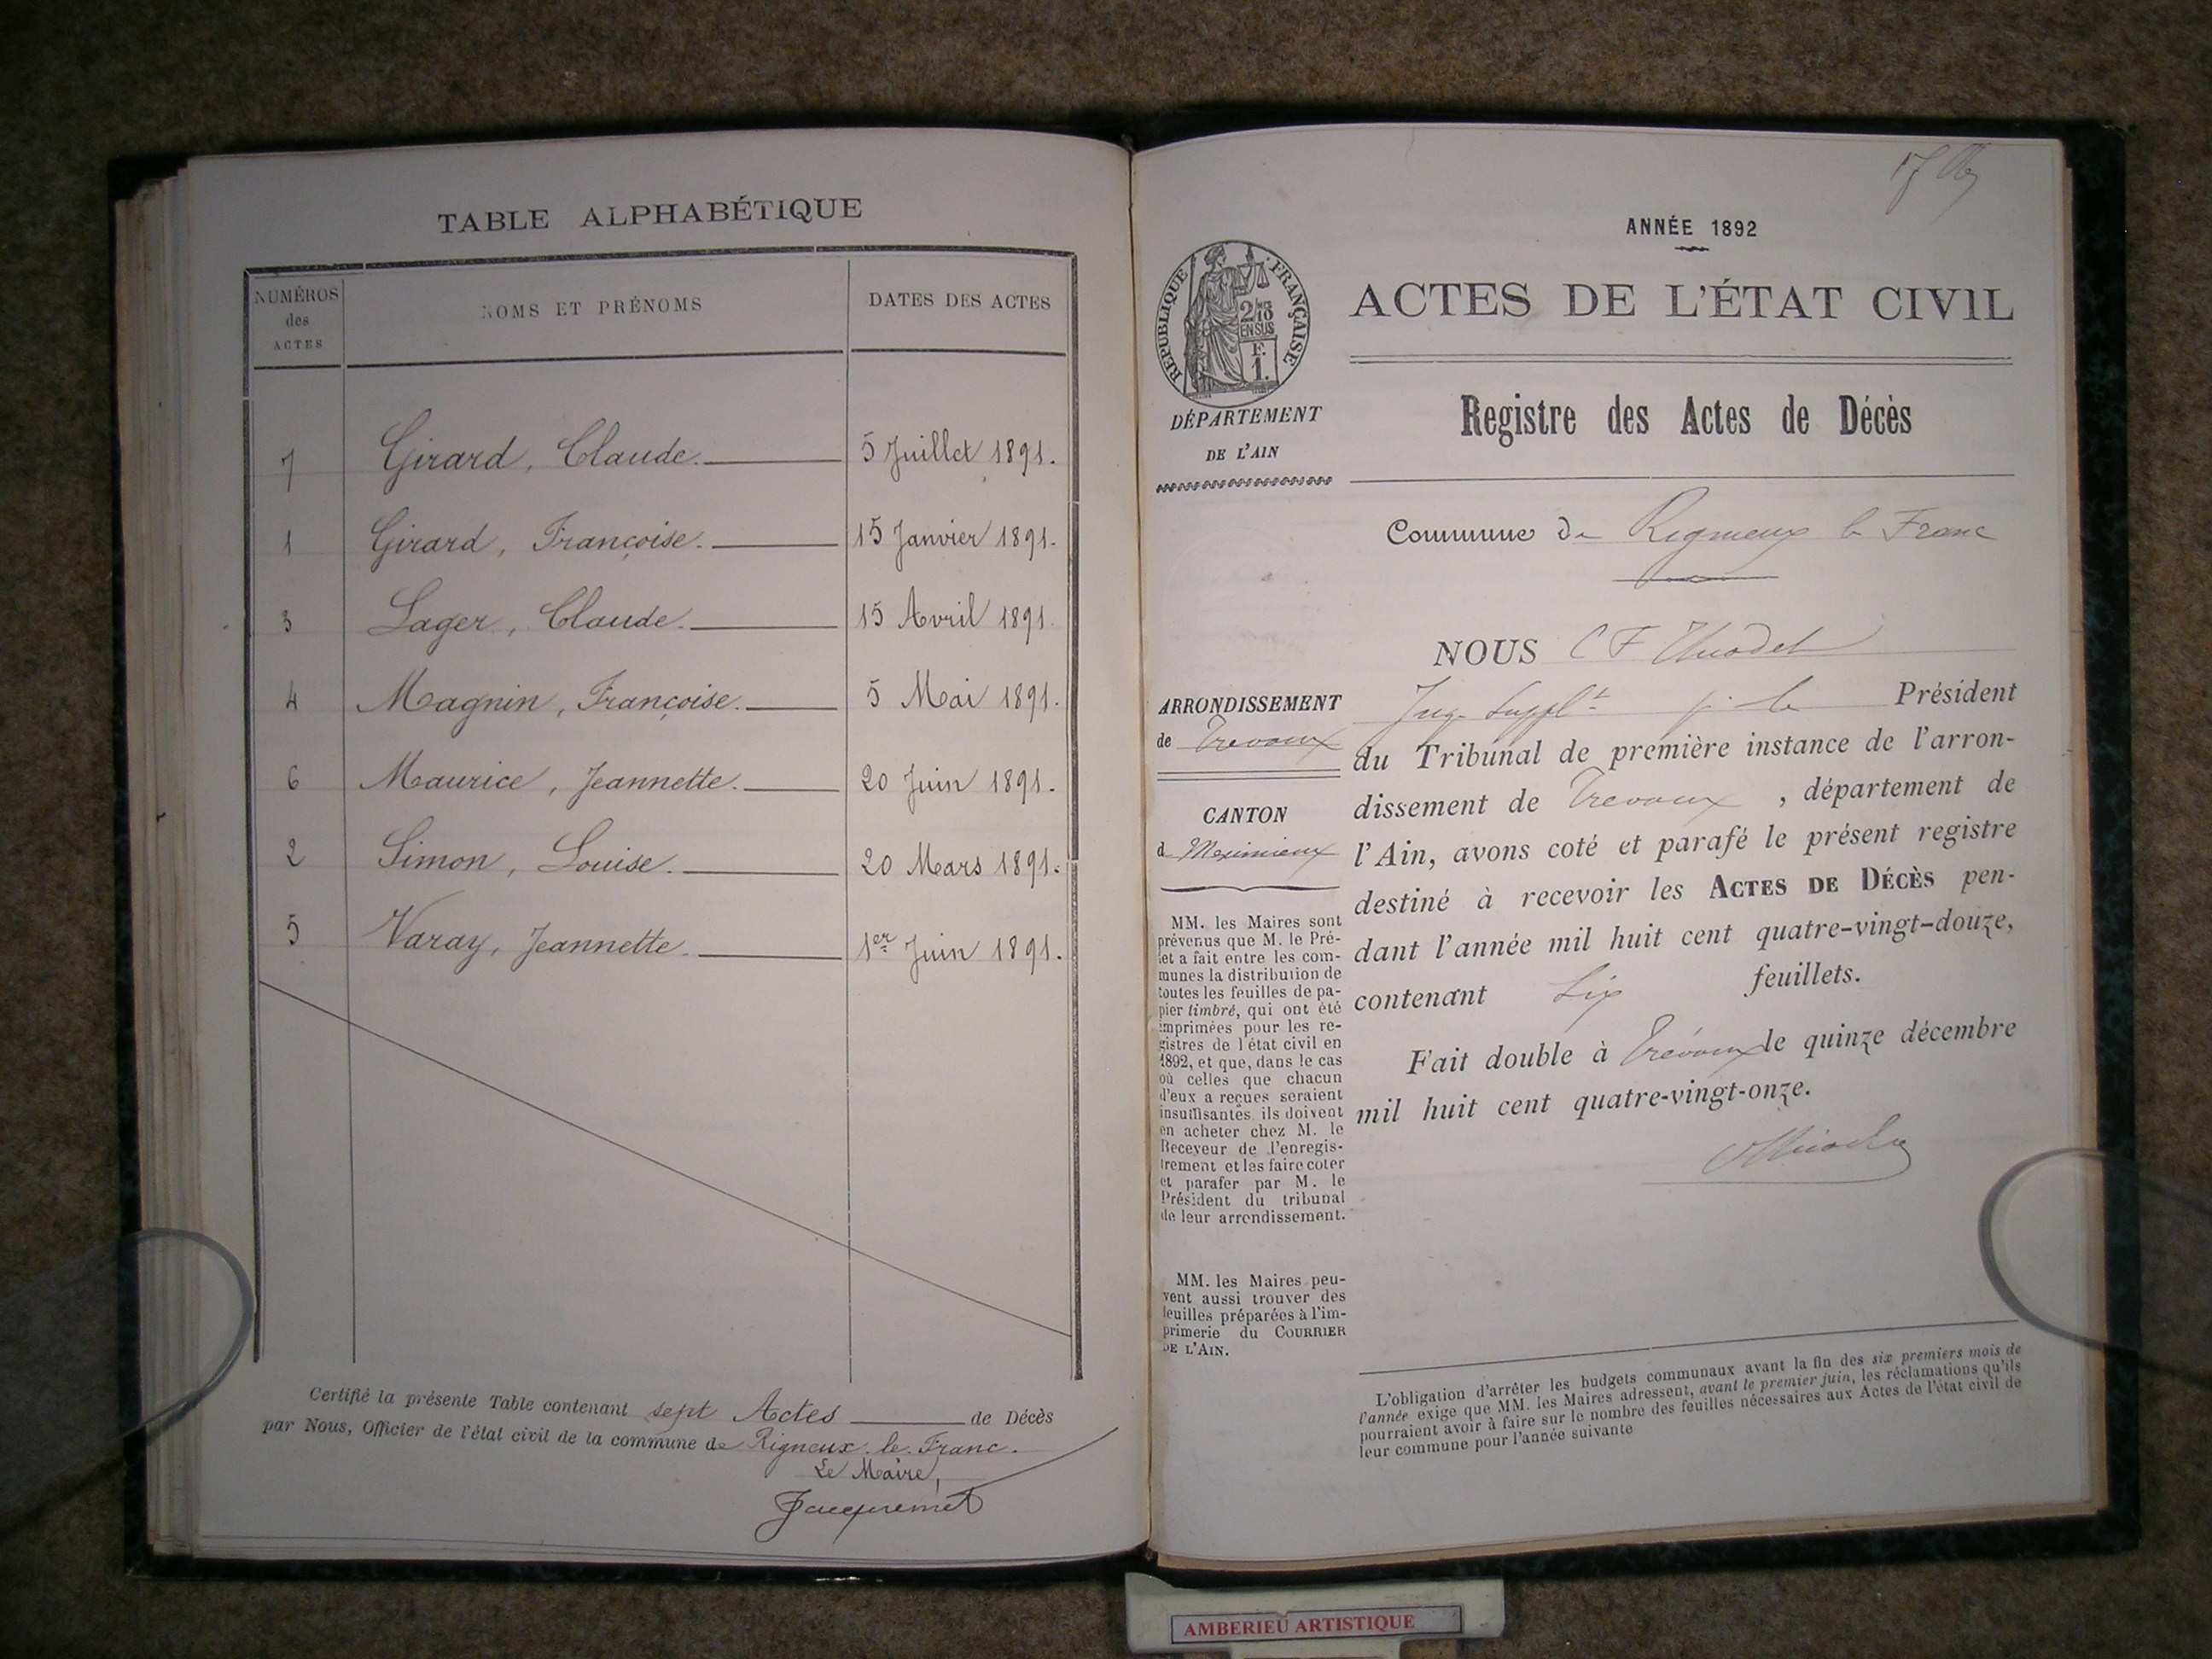 TABLE ALPHABÉTIQUE
NUMÉROS des ACTES
NOMS ET PRÉNOMS
DATES DES ACTES
7 Girard, Claude. 5 Juillet 1891.
1 Girard, Françoise. 15 Janvier 1891.
3 Lager, Claude. 15 Avril 1891.
4 Magnin, Françoise. 5 Mai 1891.
6 Maurice, Jeannette. 20 Juin 1891.
2 Simon, Louise. 20 Mars 1891.
5 Varay, Jeannette. 1er Juin 1891.
Certifié la présente Table contenant sept Actes de Décès
par Nous, Officier de l'état civil de la commune de Rigneux le Franc.
Le Maire,
Jacquemet
ANNÉE 1892
RÉPUBLIQUE FRANÇAISE
2/10
EN SUS
F.
1.
DÉPARTEMENT
DE L'AIN
ACTES DE L'ÉTAT CIVIL
Registre des Actes de Décès
Commune de Rigneux le Franc
ARRONDISSEMENT
de Trevoux
CANTON
d Meximieux
MM. les Maires sont
prévenus que M. le Pré-
fet a fait entre les com-
munes la distribution de
toutes les feuilles de pa-
pier timbré, qui ont été
imprimées pour les re-
gistres de l'état civil en
1892, et que, dans le cas
où celles que chacun
d'eux a reçues seraient
insuffisantes, ils doivent
en acheter chez M. le
Receveur de l'enregis-
trement et les faire coter
et parafer par M. le
Président du tribunal
de leur arrondissement.
MM. les Maires peu-
vent aussi trouver des
feuilles préparées à l'im-
primerie du COURRIER
DE L'AIN.
NOUS C F
Juge Suppl.t Président
du Tribunal de première instance de l'arron-
dissement de Trevoux, département de
l'Ain, avons coté et parafé le présent registre
destiné à recevoir les ACTES DE DÉCÈS pen-
dant l'année mil huit cent quatre-vingt-douze,
contenant Six feuillets.
Fait double à Trévoux le quinze décembre
mil huit cent quatre-vingt-onze.
L'obligation d'arrêter les budgets communaux avant la fin des six premiers mois de
l'année exige que MM. les Maires adressent, avant le premier juin, les réclamations qu'ils
pourraient avoir à faire sur le nombre des feuilles nécessaires aux Actes de l'état civil de
leur commune pour l'année suivante
AMBERIEU ARTISTIQUE